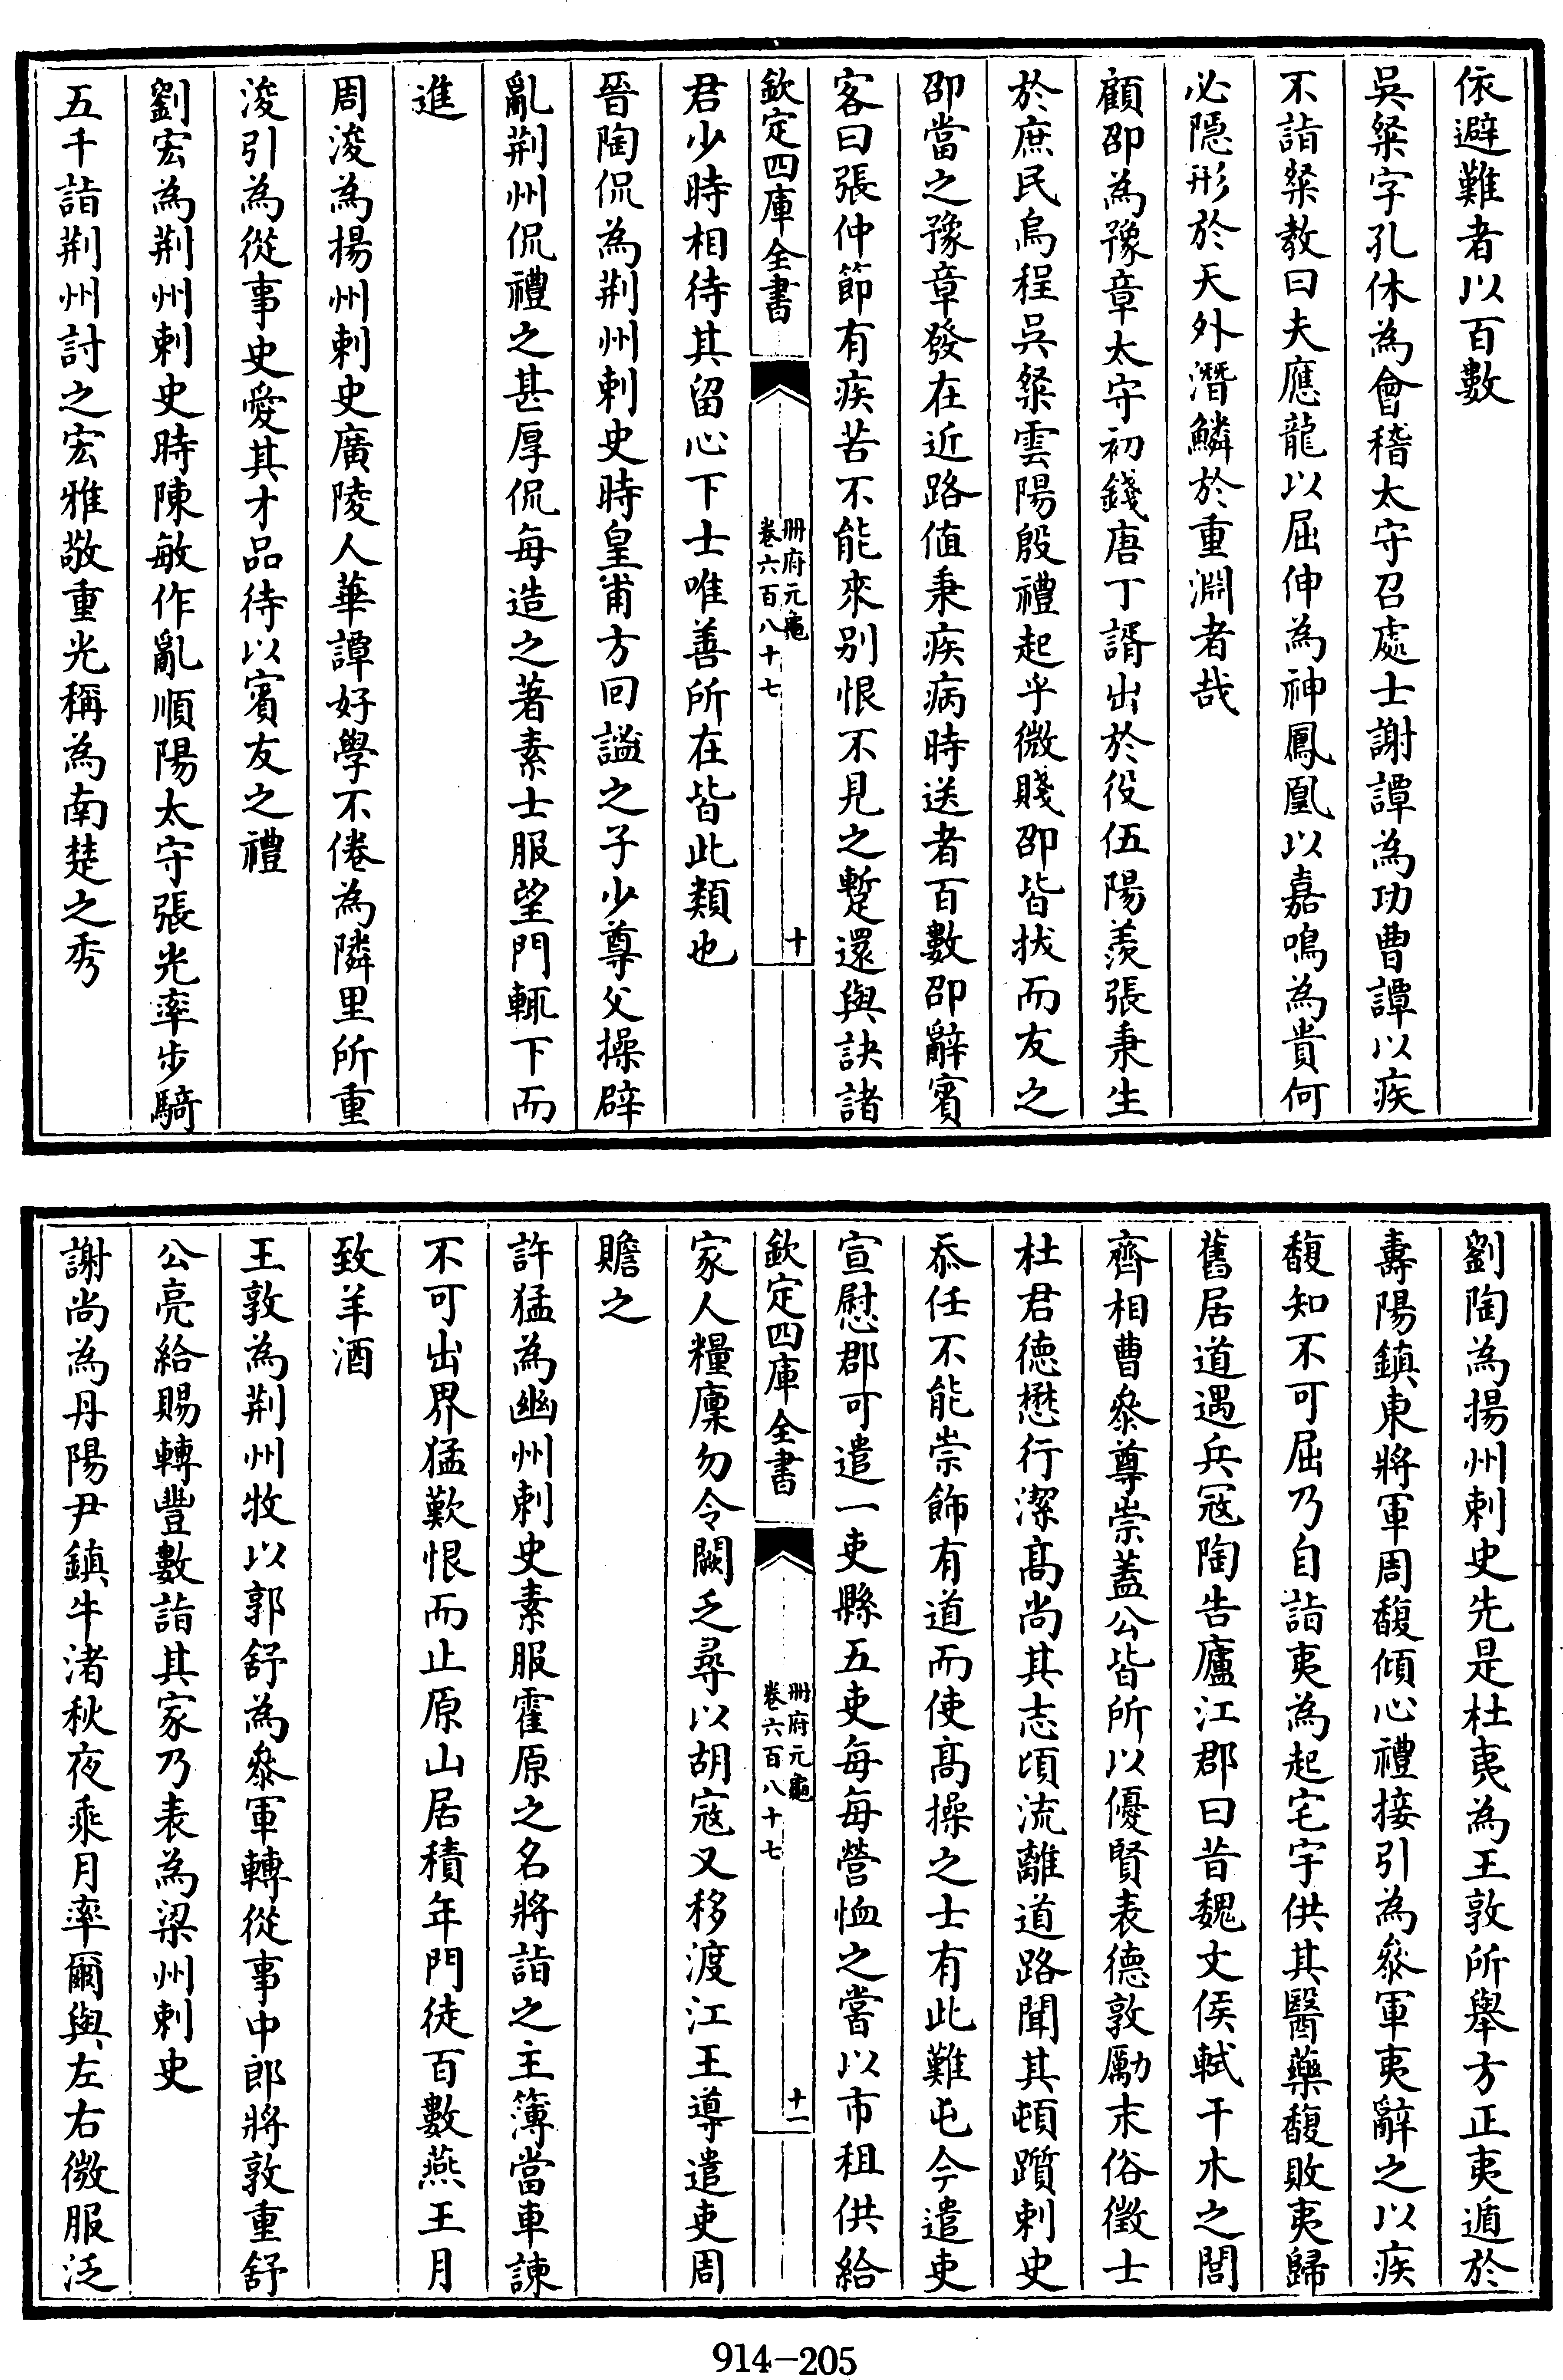 依避難者以百數
吳粲字孔休為會稽太守召處士謝譚為功曹譚以疾
不詣粲教曰夫應龍以屈伸為神鳳凰以嘉鳴為貴何
必隱形於天外潛鱗於重淵者哉
顧邵為豫章太守初錢唐丁諝出於役伍陽羨張秉生
於庶民烏程吳粲雲陽殷禮起乎微賤邵皆拔而友之
邵當之豫章發在近路值秉疾病時送者百數邵辭賓
客曰張仲節有疾苦不能來別恨不見之蹔還與訣諸
欽定四庫全書
冊府元龜
卷六百八十七
十
君少時相待其留心下士唯善所在皆此類也
晉陶侃為荆州刺史時皇甫方回謐之子少尊父操辟
亂荆州侃禮之甚厚侃每造之著素士服望門輒下而
進
周浚為揚州刺史廣陵人華譚好學不倦為隣里所重
浚引為從事史愛其才品待以賓友之禮
劉宏為荆州刺史時陳敏作亂順陽太守張光率步騎
五千詣荆州討之宏雅敬重光稱為南楚之秀
劉陶為揚州刺史先是杜夷為王敦所舉方正夷遁於
壽陽鎮東將軍周馥傾心禮接引為叅軍夷辭之以疾
馥知不可屈乃自詣夷為起宅宇供其醫藥馥敗夷歸
舊居道遇兵冦陶告廬江郡曰昔魏文侯軾干木之閭
齊相曹叅尊崇蓋公皆所以優賢表德敦勵末俗徵士
杜君德懋行潔髙尚其志頃流離道路聞其頓躓刺史
忝任不能崇飾有道而使髙操之士有此難屯今遣吏
宣慰郡可遣一吏縣五吏每每營恤之嘗以市租供給
欽定四庫全書
冊府元龜
卷六百八十七
十一
家人糧廩勿令闕乏尋以胡寇又移渡江王導遣吏周
贍之
許猛為幽州刺史素服霍原之名將詣之主簿當車諫
不可出界猛歎恨而止原山居積年門徒百數燕王月
致羊酒
王敦為荆州牧以郭舒為叅軍轉從事中郎將敦重舒
公亮給賜轉豐數詣其家乃表為梁州刺史
謝尚為丹陽尹鎮牛渚秋夜乘月率爾與左右微服泛
914-205